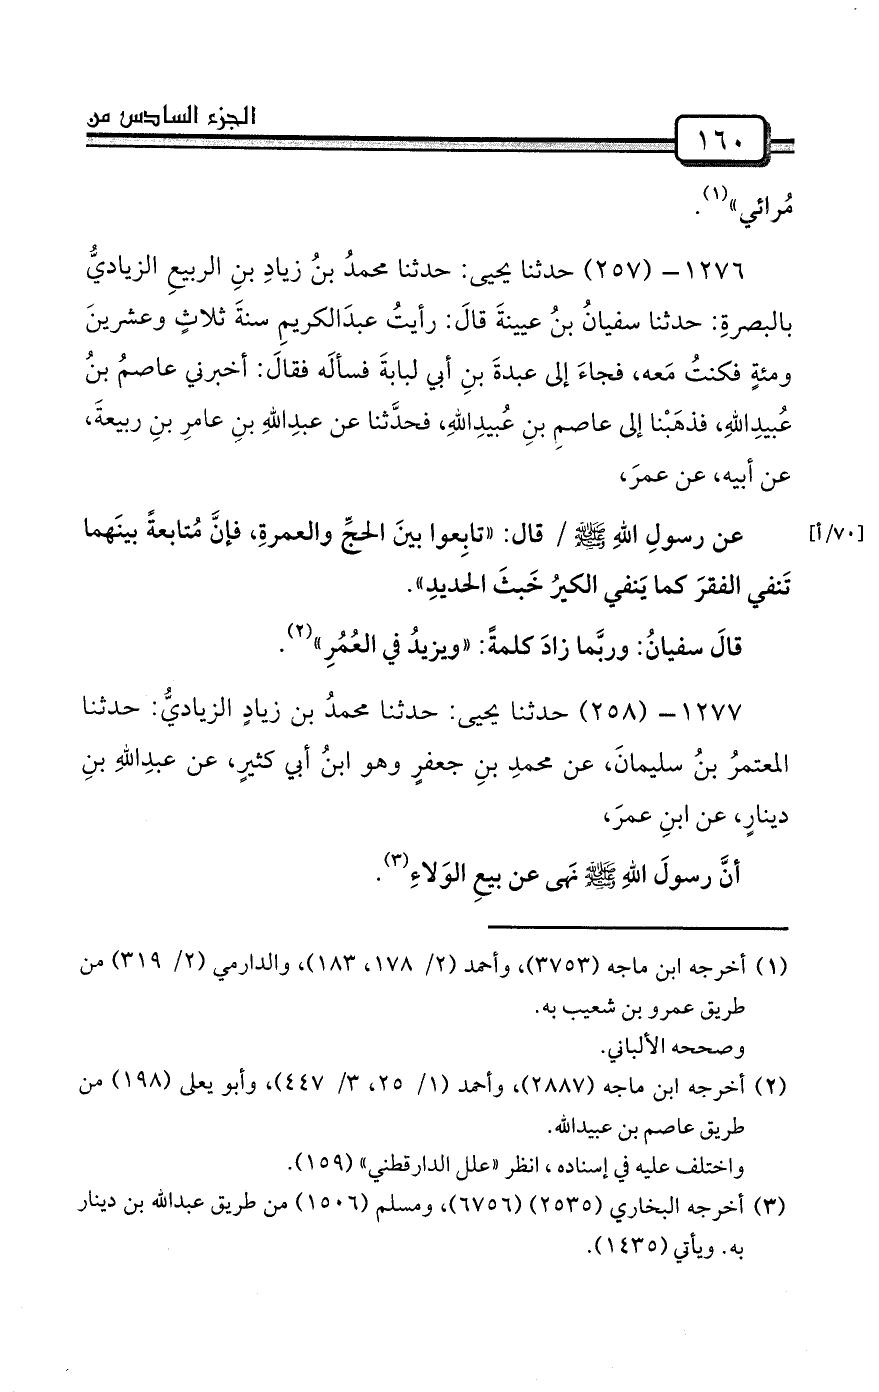 الجزء السادس من
١٦٠
مُرائي»(١).
١٢٧٦ - (٢٥٧) حدثنا يحيى: حدثنا محمدُ بنُ زيادِ بنِ الربيعِ الزياديُّ
بالبصرةِ: حدثنا سفيانُ بنُ عيينةَ قالَ: رأيتُ عبدَالكريمِ سنةَ ثلاثٍ وعشرينَ
ومئةٍ فكنتُ مَعه، فجاءَ إلى عبدةَ بنِ أبي لبابةَ فسألَه فقالَ: أخبرني عاصمُ بنُ
عُبيدِاللهِ، فذهَبْنا إلى عاصمِ بنِ عُبيدِاللهِ، فحدَّثنا عن عبدِاللهِ بنِ عامرِ بنِ ربيعةَ،
عن أبيه، عن عمرَ،
عن رسولِ اللهِ ﷺ / قال: «تابِعوا بينَ الحجِّ والعمرةِ، فإنَّ مُتابعةً بينَهما
[٧٠/أ]
تَنفي الفقرَ كما يَنفي الكيرُ خَبثَ الحديدِ».
قالَ سفيانُ: وربَّما زادَ كلمةً: «ويزيدُ في العُمُرِ»(٢).
١٢٧٧ - (٢٥٨) حدثنا يحيى: حدثنا محمدُ بن زيادٍ الزياديُّ: حدثنا
المعتمرُ بنُ سليمانَ، عن محمدِ بنِ جعفرٍ وهو ابنُ أبي كثيرٍ، عن عبدِاللهِ بنِ
دينارٍ، عن ابنِ عمرَ،
أنَّ رسولَ اللهِ ﷺ نَهى عن بيعِ الوَلاءِ(٣).
(١) أخرجه ابن ماجه (٣٧٥٣)، وأحمد (٢/ ١٧٨، ١٨٣)، والدارمي (٢/ ٣١٩) من
طريق عمرو بن شعيب به.
وصححه الألباني.
(٢) أخرجه ابن ماجه (٢٨٨٧)، وأحمد (١/ ٢٥، ٣/ ٤٤٧)، وأبو يعلى (١٩٨) من
طريق عاصم بن عبيدالله.
واختلف عليه في إسناده، انظر «علل الدارقطني» (١٥٩).
(٣) أخرجه البخاري (٢٥٣٥) (٦٧٥٦)، ومسلم (١٥٠٦) من طريق عبدالله بن دينار
به. ويأتي (١٤٣٥).